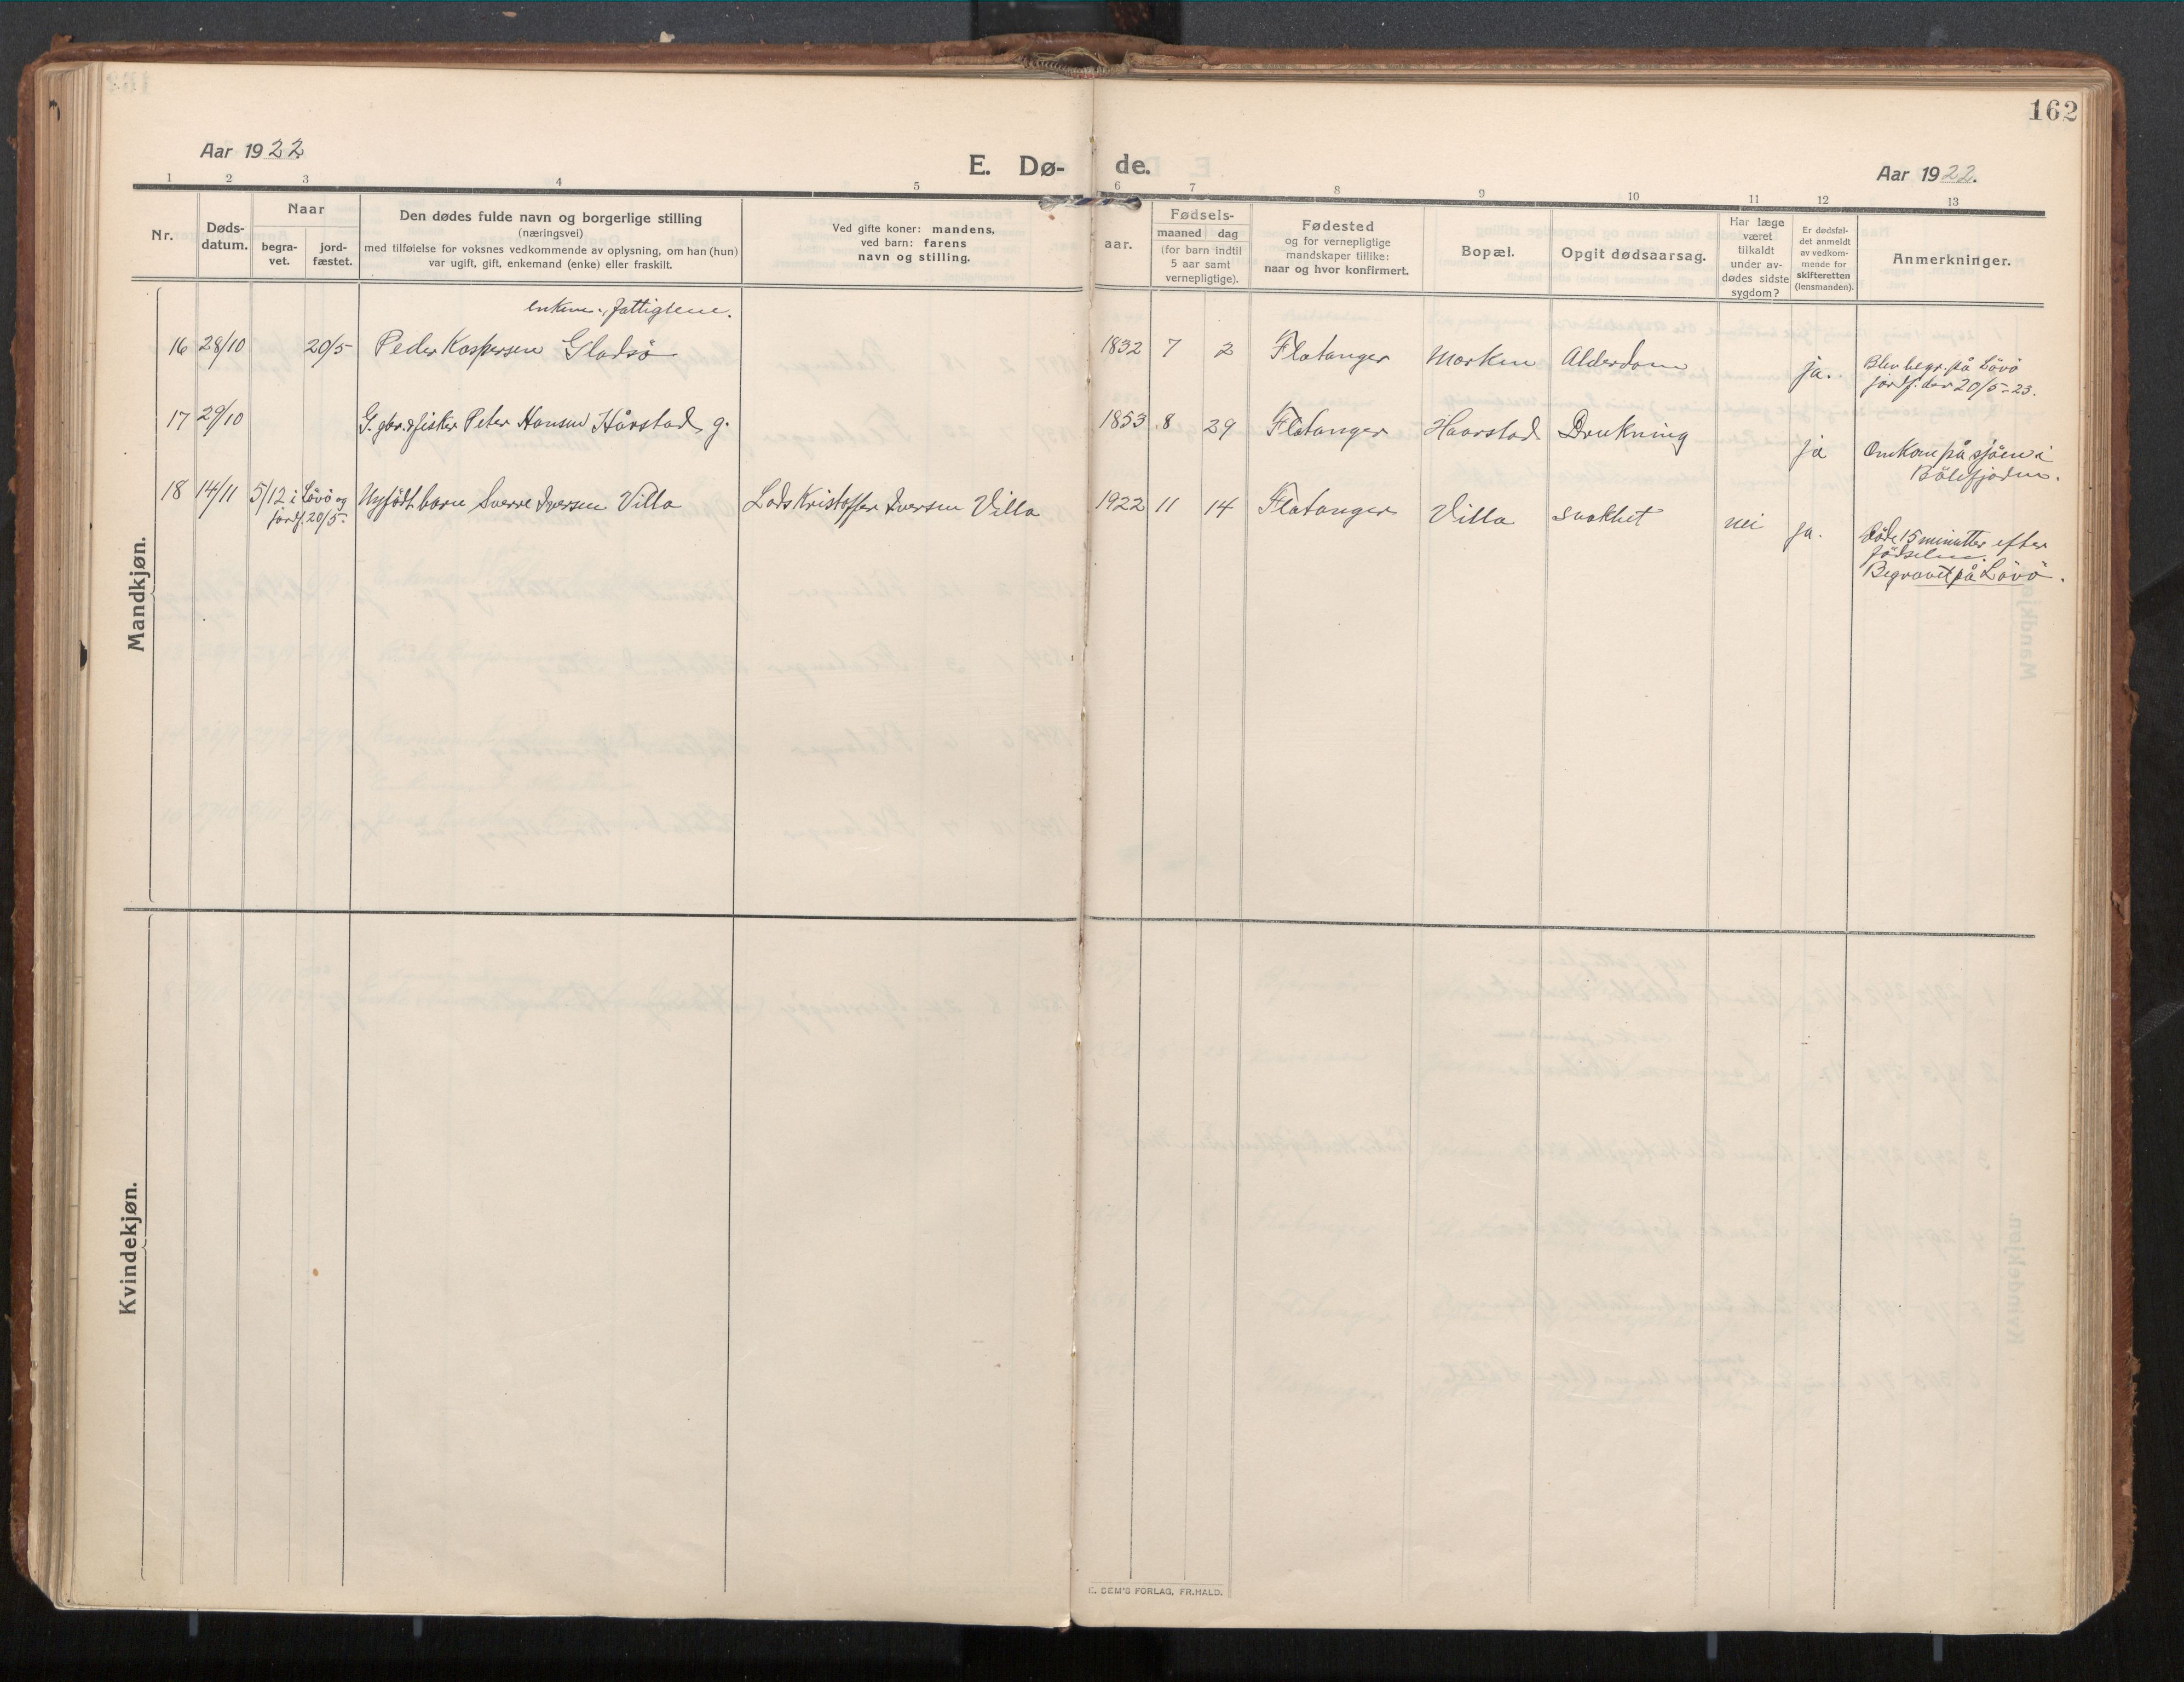 162
Aar 1922
E. Dø-
de.
Aar 1922.
1 2 3 4 5 6 7 8 9 10 11 12 13
Nr.
Døds-
datum.
Naar
begra-
vet.
jord-
fæstet.
Den dødes fulde navn og borgerlige stilling
(næringsvei)
med tilføielse for voksnes vedkommende av oplysning, om han (hun)
var ugift, gift, enkemand (enke) eller fraskilt.
Ved gifte koner: mandens,
ved barn: farens
navn og stilling.
Fødsels-
aar.
maaned dag
(for barn indtil
5 aar samt
vernepligtige).
Fødested
og for vernepligtige
mandskaper tillike:
naar og hvor konfirmert.
Bopæl.
Opgit dødsaarsag.
Har læge
været
tilkaldt
under av-
dødes sidste
sygdom?
Er dødsfal-
det anmeldt
av vedkom-
mende for
skifteretten
(lensmanden).
Anmerkninger.
Mandkjøn.
enkem., fattiglem.
16 28/10 20/5 Peder Kaspersen Gladsö 1832 7 2 Flatanger Morken Alderdom ja.
Blev begr. på Lövö
jordf. den 20/5-23.
17 29/10 G.br. og fisker Peter Hansen Hårstad g. 1853 8 29 Flatanger Haarstad Drukning ja
Omkom på sjøen i
Bölefjorden.
18 14/11 5/12 i Lövö og
jordf. 20/5-
Nyfødt barn Sverre Iversen Villa Lads Kristoffer Iversen Villa 1922 11 14 Flatanger Villa svakhet nei ja.
Døde 15 minutter efter
fødselen.
Begravet på Lövö.
Kvindekjøn.
E. SEM'S FORLAG, FR.HALD.